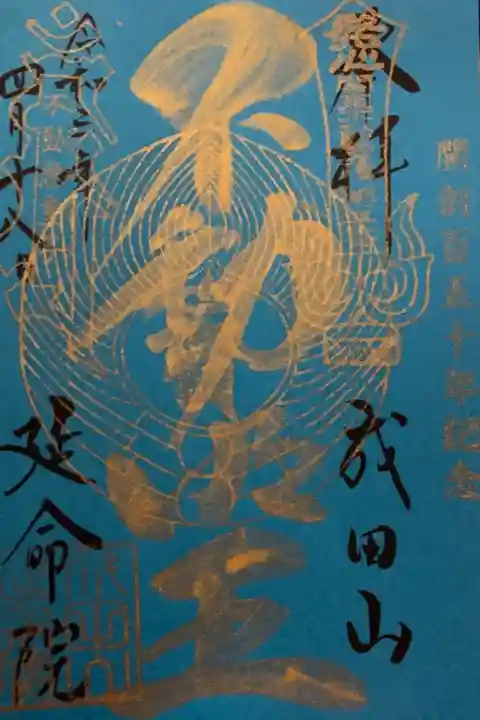 開創百五十年記念
奉拝
成田山
不動明王
令和三年
四月十八日
延命院